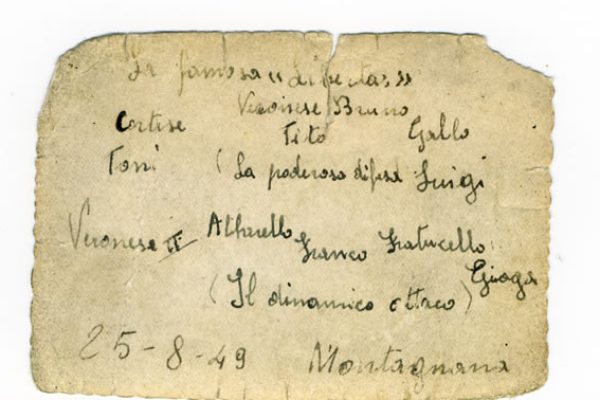 La famosa "Libertas"
Veronese Bruno
Cortese Tito Gallo
Toni (La poderosa difesa Luigi
Veronese II Altarello Franco Fratucello
Gioga
(Il dinamico attaco)
25-8-49 Montagnana